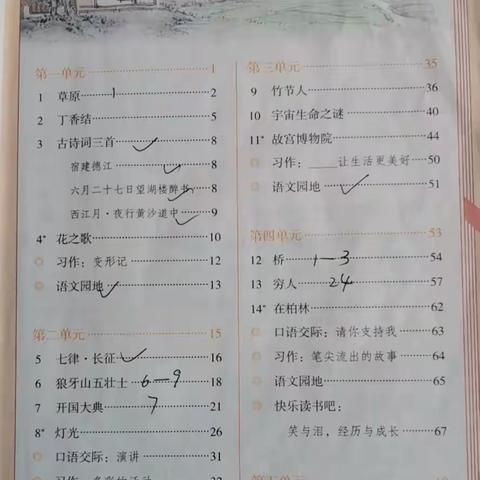 第一单元 1
1 草原 1 2
2 丁香结 5
3 古诗词三首 ✓ 8
宿建德江 ✓ 8
六月二十七日望湖楼醉书 ✓ 8
西江月·夜行黄沙道中 ✓ 9
4* 花之歌 10
习作：变形记 12
语文园地 ✓ 13
第二单元 15
5 七律·长征 ✓ 16
6 狼牙山五壮士 6-9 18
7 开国大典 7 21
8* 灯光 26
口语交际：演讲 31
第三单元 35
9 竹节人 36
10 宇宙生命之谜 40
11* 故宫博物院 44
习作：____让生活更美好 50
语文园地 ✓ 51
第四单元 53
12 桥 1-3 54
13 穷人 24 57
14* 在柏林 62
口语交际：请你支持我 63
习作：笔尖流出的故事 64
语文园地 65
快乐读书吧：
笑与泪，经历与成长 67